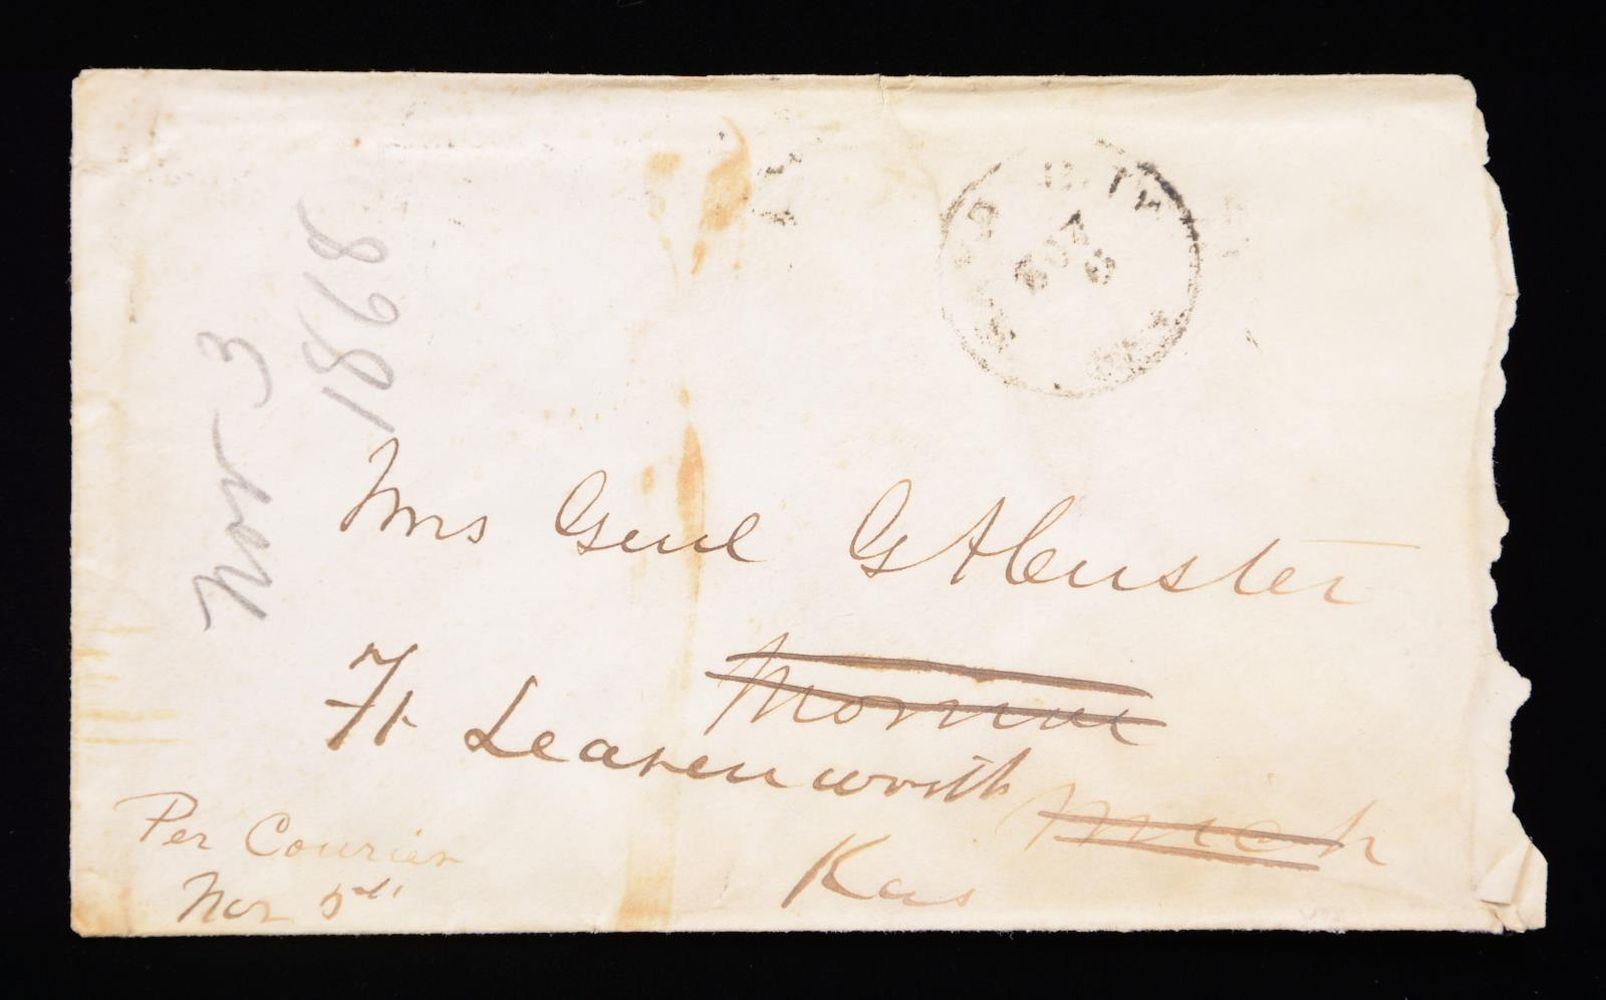 Nov 3
1868
NOV
Mrs Genl G A Custer
Monroe
Ft Leavenworth
Mich
Kas
Per Courier
Nov 5th